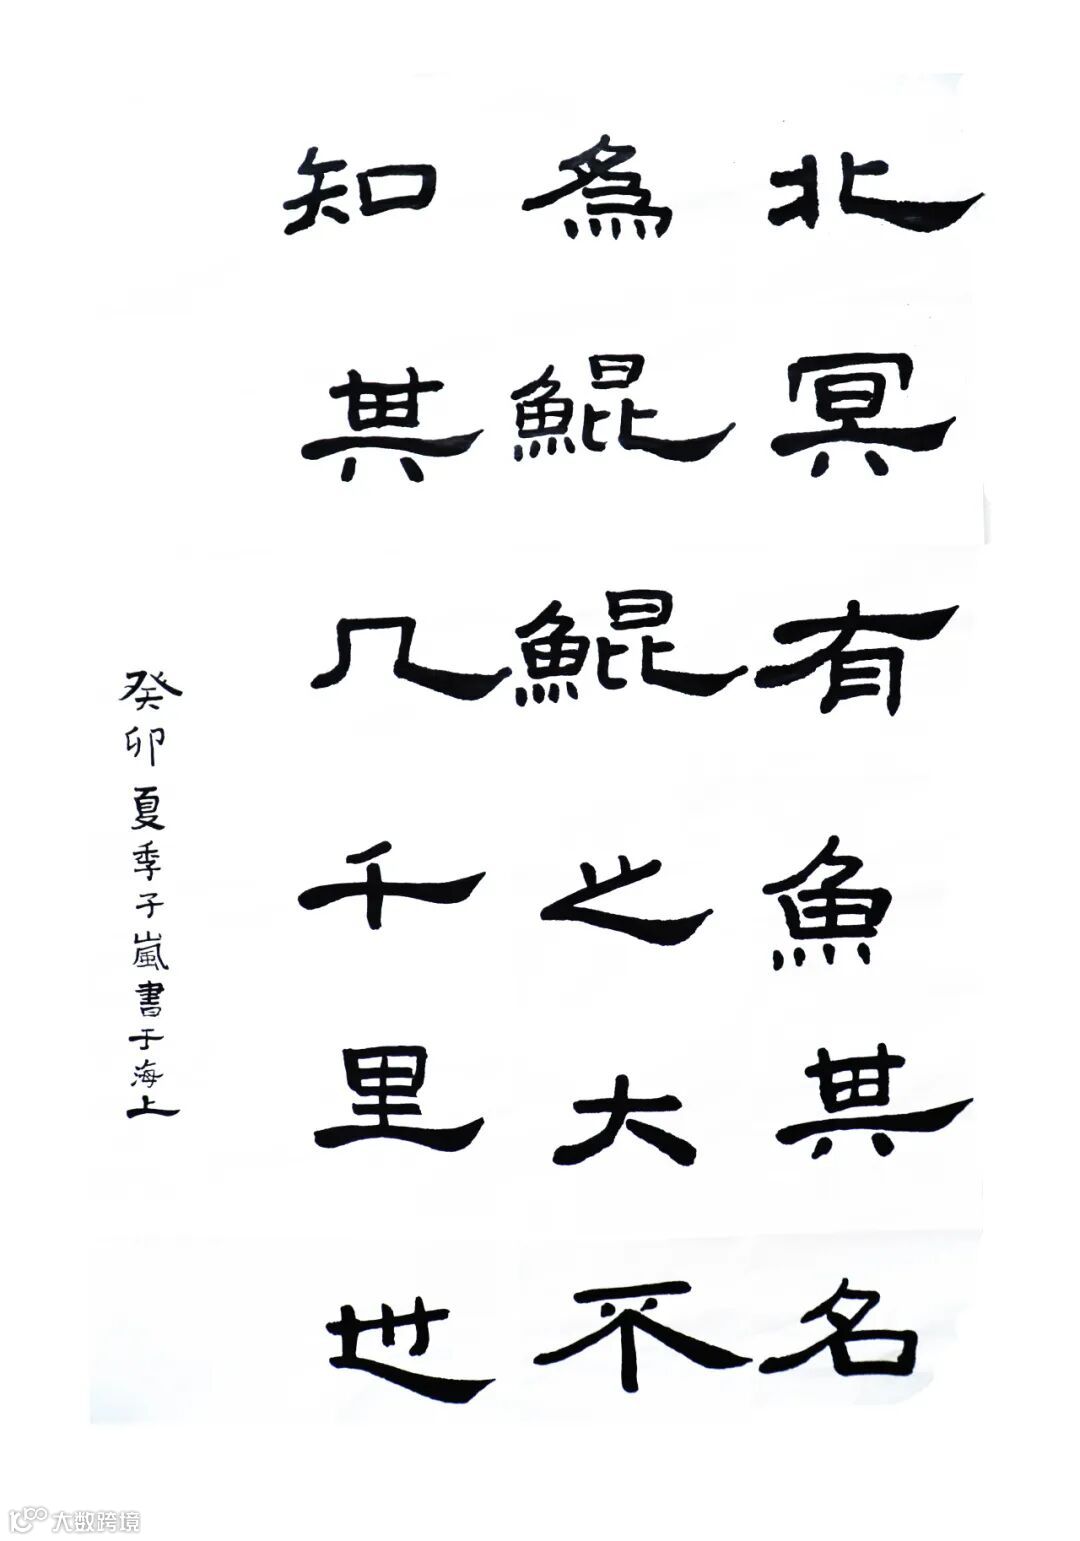 北冥有魚其名
為鯤鯤之大不
知其几千里也
癸卯夏季子嵐書于海上
大数跨境